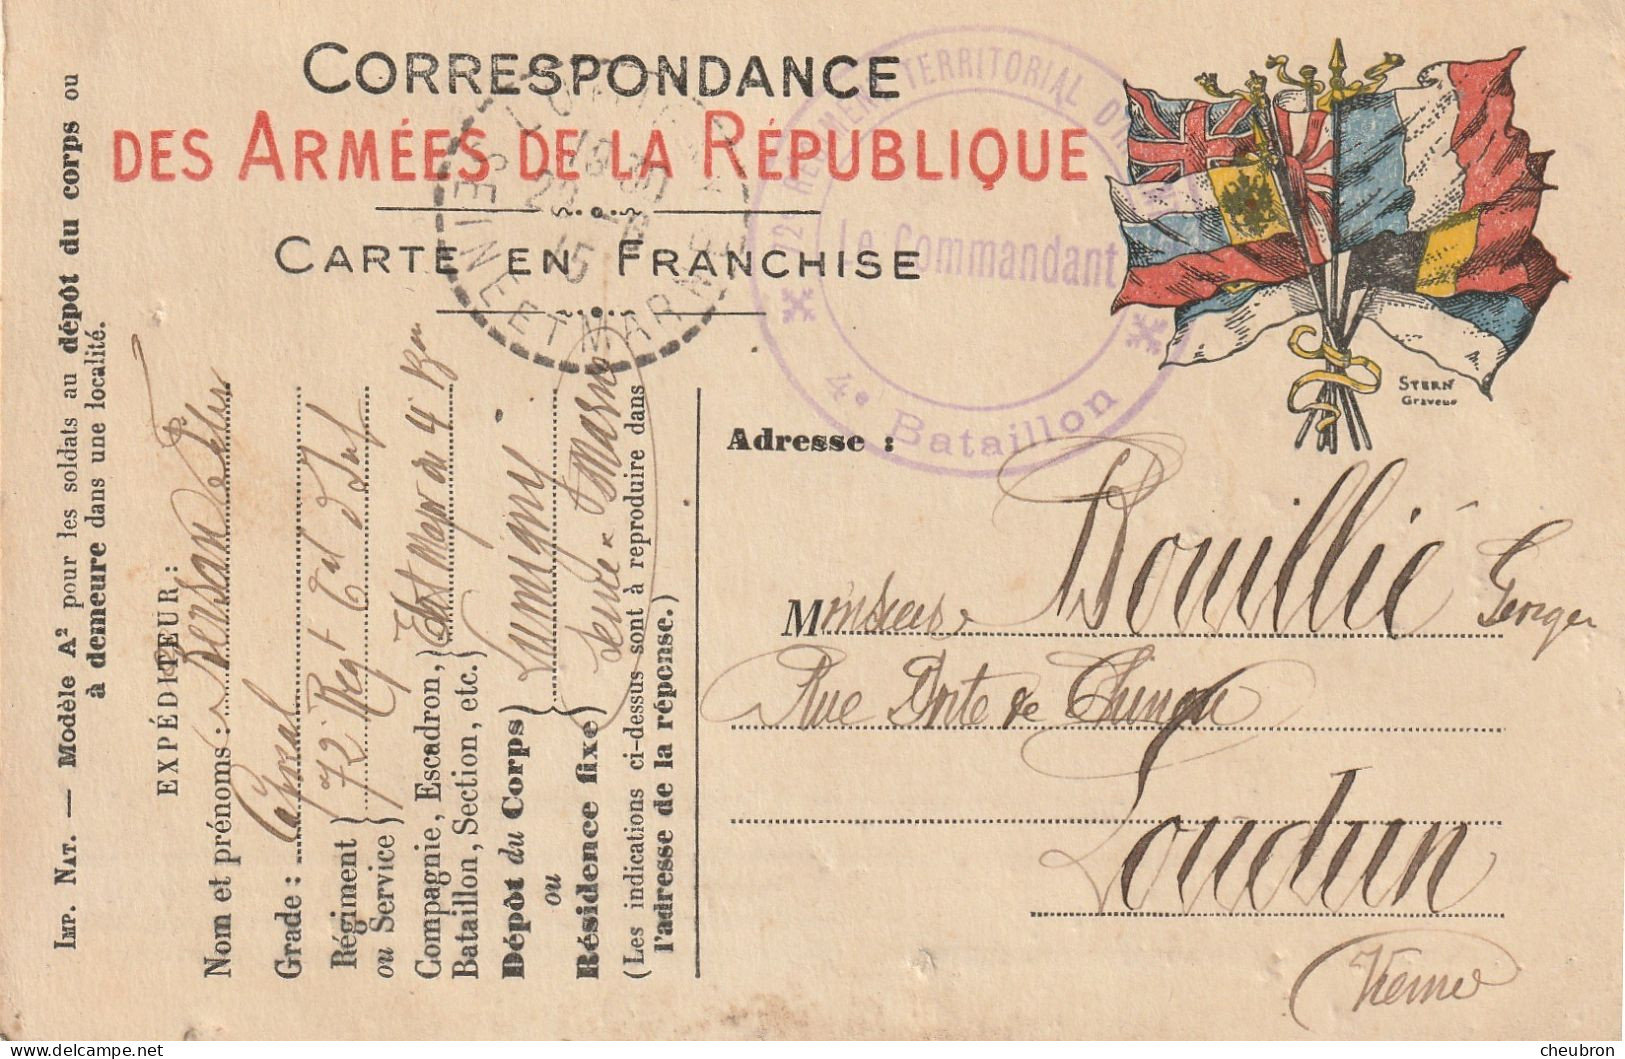 CORRESPONDANCE
DES ARMÉES DE LA RÉPUBLIQUE
CARTE EN FRANCHISE
SEINE ET MARNE
15
72e RÉGIMENT TERRITORIAL D'IN
Le Commandant
4e Bataillon
STERN
Graveur
IMP. NAT. — Modèle A² pour les soldats au dépôt du corps ou
à demeure dans une localité.
EXPÉDITEUR :
Nom et prénoms : Dersan
Grade : Caporal
Régiment
ou Service } 72e Regt Cal d'Inf
Compagnie, Escadron,
Bataillon, Section, etc. } Etat Major du 4e Bon
Dépôt du Corps
ou
Résidence fixe } Lumigny
Seine & Marne
(Les indications ci-dessus sont à reproduire dans
l'adresse de la réponse.)
Adresse :
Monsieur Douillié Georges
Rue Porte de Chinon
Loudun
Vienne
cheubron
delcampe.net